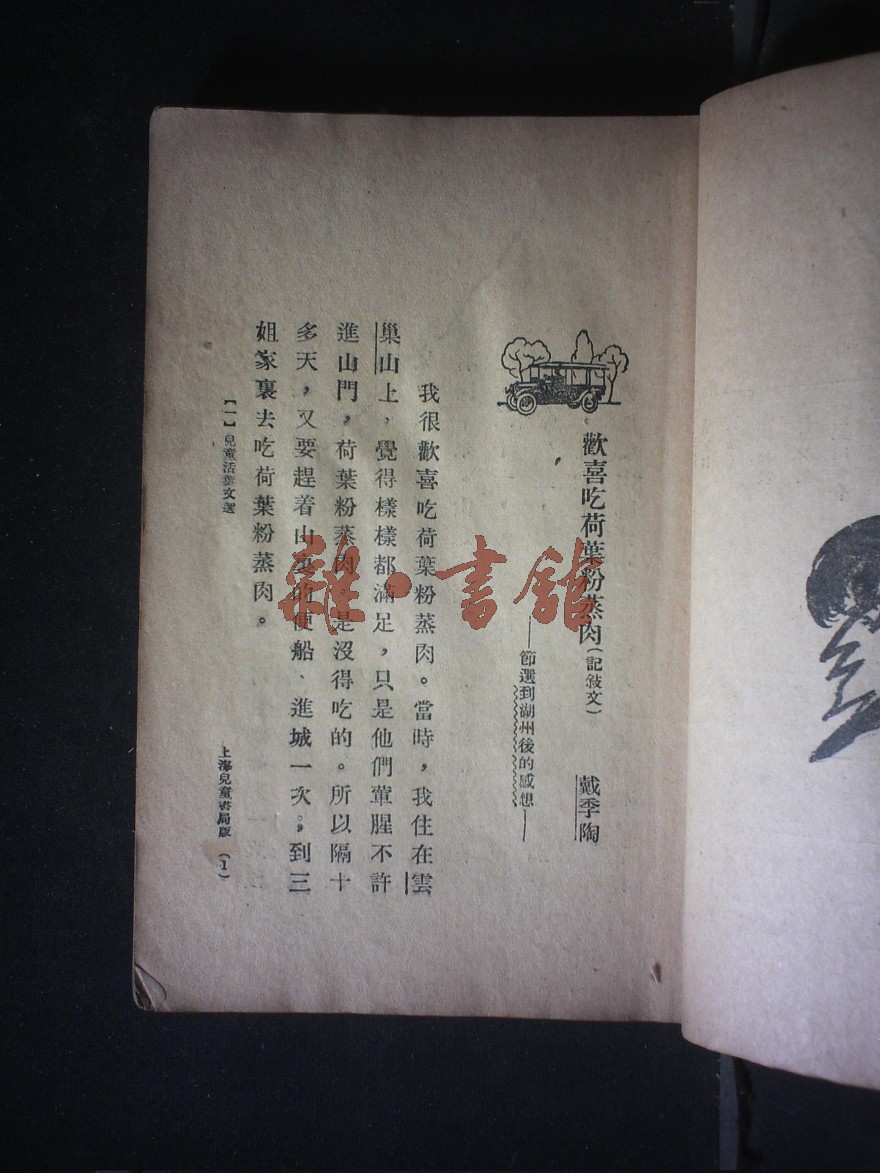 歡喜吃荷葉粉蒸肉(記敍文)
戴季陶
——節選到湖州後的感想——
我很歡喜吃荷葉粉蒸肉。當時,我住在雲
巢山上,覺得樣樣都滿足,只是他們葷腥不許
進山門,荷葉粉蒸肉,是沒得吃的。所以隔十
多天,又要趕着山裏的便船、進城一次。,到三
姐家裏去吃荷葉粉蒸肉。
【一】兒童活葉文選
上海兒童書局版 (1)
雜·書館